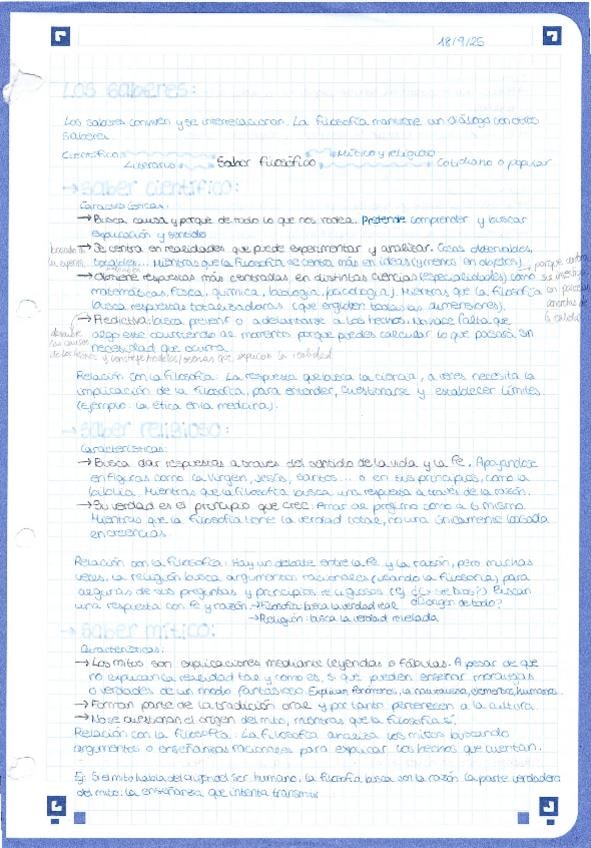 18/9/25
LOS SABERES:
Los saberes conviven y se interrelacionan. La filosofía mantiene un diálogo con otros
saberes.
Científico Literario Saber filosófico Mítico y religioso Cotidiano o popular
→ Saber científico:
Características:
→ Busca causa y porqué de todo lo que nos rodea. Pretende comprender y buscar
explicación y sentido
→ Se centra en realidades que puede experimentar y analizar. Cosas observables,
tangibles... Mientras que la filosofía se centra más en ideas (y menos en objetos).
→ Obtiene respuestas más centradas en distintas ciencias (especialidades) como
matemáticas, física, química, biología, psicología). Mientras que la filosofía
busca respuestas totalizadoras (que engloben todas las dimensiones).
→ Predictiva: busca prevenir o adelantarse a los hechos. No hace falta que
algo esté ocurriendo al momento porque puedes calcular lo que pasará sin
necesidad que ocurra.
Relación con la filosofía: La respuesta que busca la ciencia, a veces necesita la
implicación de la filosofía, para entender, cuestionarse y establecer límites
(Ejemplo: la ética en la medicina).
→ Saber religioso:
Características:
→ Busca dar respuestas a través del sentido de la vida y la fe. Apoyándose
en figuras como la Virgen, Jesús, santos... o en sus principios, como la
biblia. Mientras que la filosofía busca una respuesta a través de la razón.
→ Su verdad es el principio que cree. Amar al prójimo como a ti mismo.
Mientras que la filosofía tiene la verdad total, no una únicamente basada
en creencias.
Relación con la filosofía: Hay un debate entre la fe y la razón, pero muchas
veces, la religión busca argumentos racionales (usando la filosofía) para
algunas de sus preguntas y principios religiosos (Ej ¿ Dios?) Buscan
una respuesta con fe y razón → Filosofía: busca la verdad real al origen de todo?
→ Religión: busca la verdad revelada
→ Saber mítico:
Características:
→ Los mitos son explicaciones mediante leyendas o fábulas. A pesar de que
no explican la realidad tal y como es, si que pueden enseñar moralejas
o verdades de un modo fantasioso. Explican fenómenos, la naturaleza, elementos, humanos.
→ Forman parte de la tradición oral y por tanto pertenecen a la cultura.
→ No se cuestionan el origen del mito, mientras que la filosofía sí.
Relación con la filosofía: La filosofía analiza los mitos buscando
argumentos o enseñanzas racionales para explicar los hechos que cuentan.
Ej: Si el mito habla del origen del ser humano, la filosofía busca con la razón la parte verdadera
del mito: la enseñanza que intenta transmitir